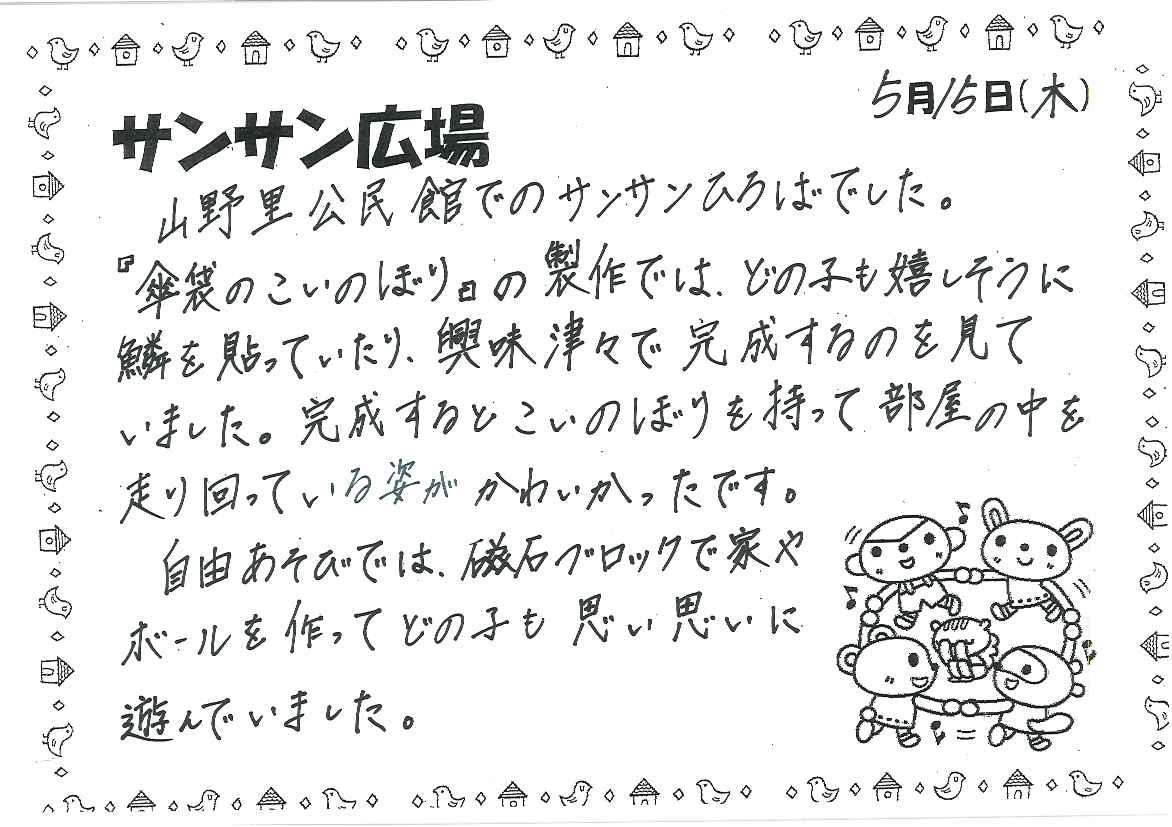 5月15日(木)
サンサン広場
山野里公民館でのサンサンひろばでした。
『傘袋のこいのぼり』の製作では、どの子も嬉しそうに
鱗を貼っていたり、興味津々で完成するのを見て
いました。完成するとこいのぼりを持って部屋の中を
走り回っている姿がかわいかったです。
自由あそびでは、磁石ブロックで家や
ボールを作ってどの子も思い思いに
遊んでいました。